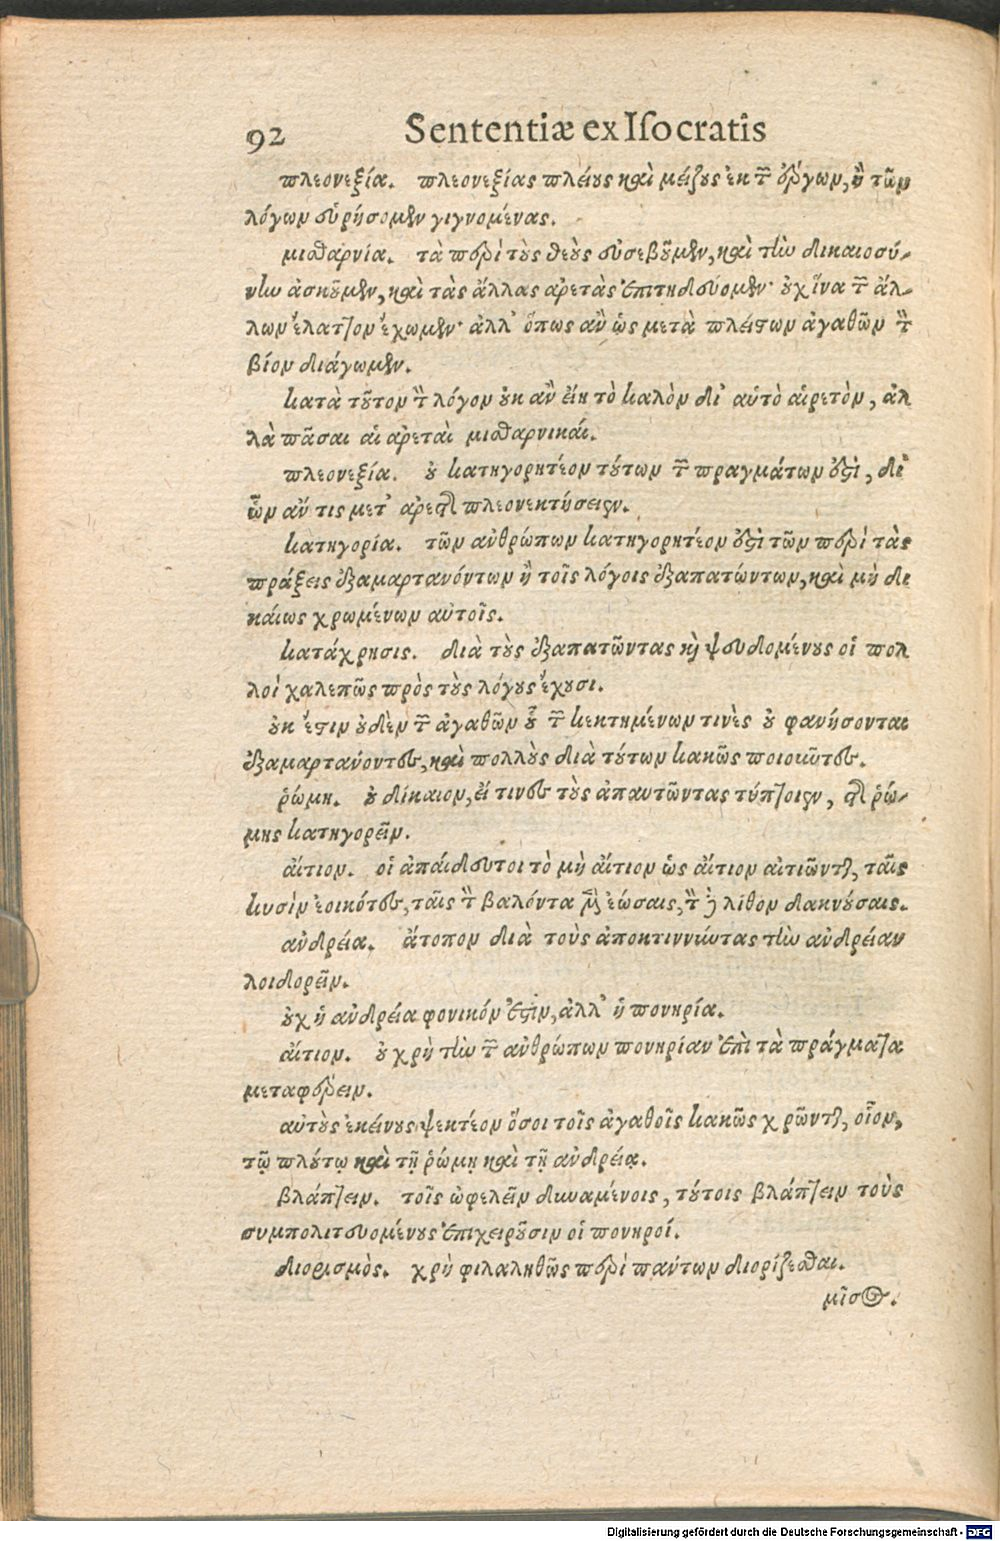 92 Sententiæ ex Isocratis
πλεονεξία. πλεονεξίας πλείους καὶ μείζους ἐκ τῶν ἔργων, ἢ τῶν
λόγων εὑρήσομεν γιγνομένας.
μισθαρνία. τὰ περὶ τοὺς θεοὺς εὐσεβοῦμεν, καὶ τὴν δικαιοσύ-
νην ἀσκοῦμεν, καὶ τὰς ἄλλας ἀρετὰς ἐπιτηδεύομεν· οὐχ ἵνα τῶν ἄλ-
λων ἔλαττον ἔχωμεν· ἀλλ' ὅπως ἂν ὡς μετὰ πλείστων ἀγαθῶν τὸν
βίον διάγωμεν.
κατὰ τοῦτον τὸν λόγον οὐκ ἂν εἴη τὸ καλὸν δι' αὑτὸ αἱρετὸν, ἀλ
λὰ πᾶσαι αἱ ἀρεταὶ μισθαρνικαί.
πλεονεξία. οὐ κατηγορητέον τούτων τῶν πραγμάτων ἐστὶ, δι'
ὧν ἄν τις μετ' ἀρετῆς πλεονεκτήσειεν.
κατηγορία. τῶν ἀνθρώπων κατηγορητέον ἐστὶ τῶν περὶ τὰς
πράξεις ἐξαμαρτανόντων ἢ τοῖς λόγοις ἐξαπατώντων, καὶ μὴ δι
καίως χρωμένων αὐτοῖς.
κατάχρησις. διὰ τοὺς ἐξαπατῶντας καὶ ψευδομένους οἱ πολ
λοὶ χαλεπῶς πρὸς τοὺς λόγους ἔχουσι.
οὐκ ἔστιν οὐδὲν τῶν ἀγαθῶν οὗ τῶν κεκτημένων τινὲς οὐ φανήσονται
ἐξαμαρτάνοντες, καὶ πολλοὺς διὰ τούτων κακῶς ποιοῦντες.
ῥώμη. οὐ δίκαιον, εἴ τινες τοὺς ἀπαντῶντας τύπτοιεν, τῆς ῥώ-
μης κατηγορεῖν.
αἴτιον. οἱ ἀπαίδευτοι τὸ μὴ αἴτιον ὡς αἴτιον αἰτιῶνται, ταῖς
κυσὶν ἐοικότες, ταῖς τὸν βαλόντα μὲν ἐώσαις, τὸν δὲ λίθον δακνούσαις.
ἀνδρεία. ἄτοπον διὰ τοὺς ἀποκτιννύντας τὴν ἀνδρείαν
λοιδορεῖν.
οὐχ ἡ ἀνδρεία φονικόν ἐστιν, ἀλλ' ἡ πονηρία.
αἴτιον. οὐ χρὴ τὴν τῶν ἀνθρώπων πονηρίαν ἐπὶ τὰ πράγματα
μεταφέρειν.
αὐτοὺς ἐκείνους ψεκτέον ὅσοι τοῖς ἀγαθοῖς κακῶς χρῶνται, οἷον,
τῷ πλούτῳ καὶ τῇ ῥώμῃ καὶ τῇ ἀνδρείᾳ.
βλάπτειν. τοῖς ὠφελεῖν δυναμένοις, τούτοις βλάπτειν τοὺς
συμπολιτευομένους ἐπιχειροῦσιν οἱ πονηροί.
διορισμὸς. χρὴ φιλαληθῶς περὶ πάντων διορίζεσθαι.
μῖσος.
Digitalisierung gefördert durch die Deutsche Forschungsgemeinschaft - DFG